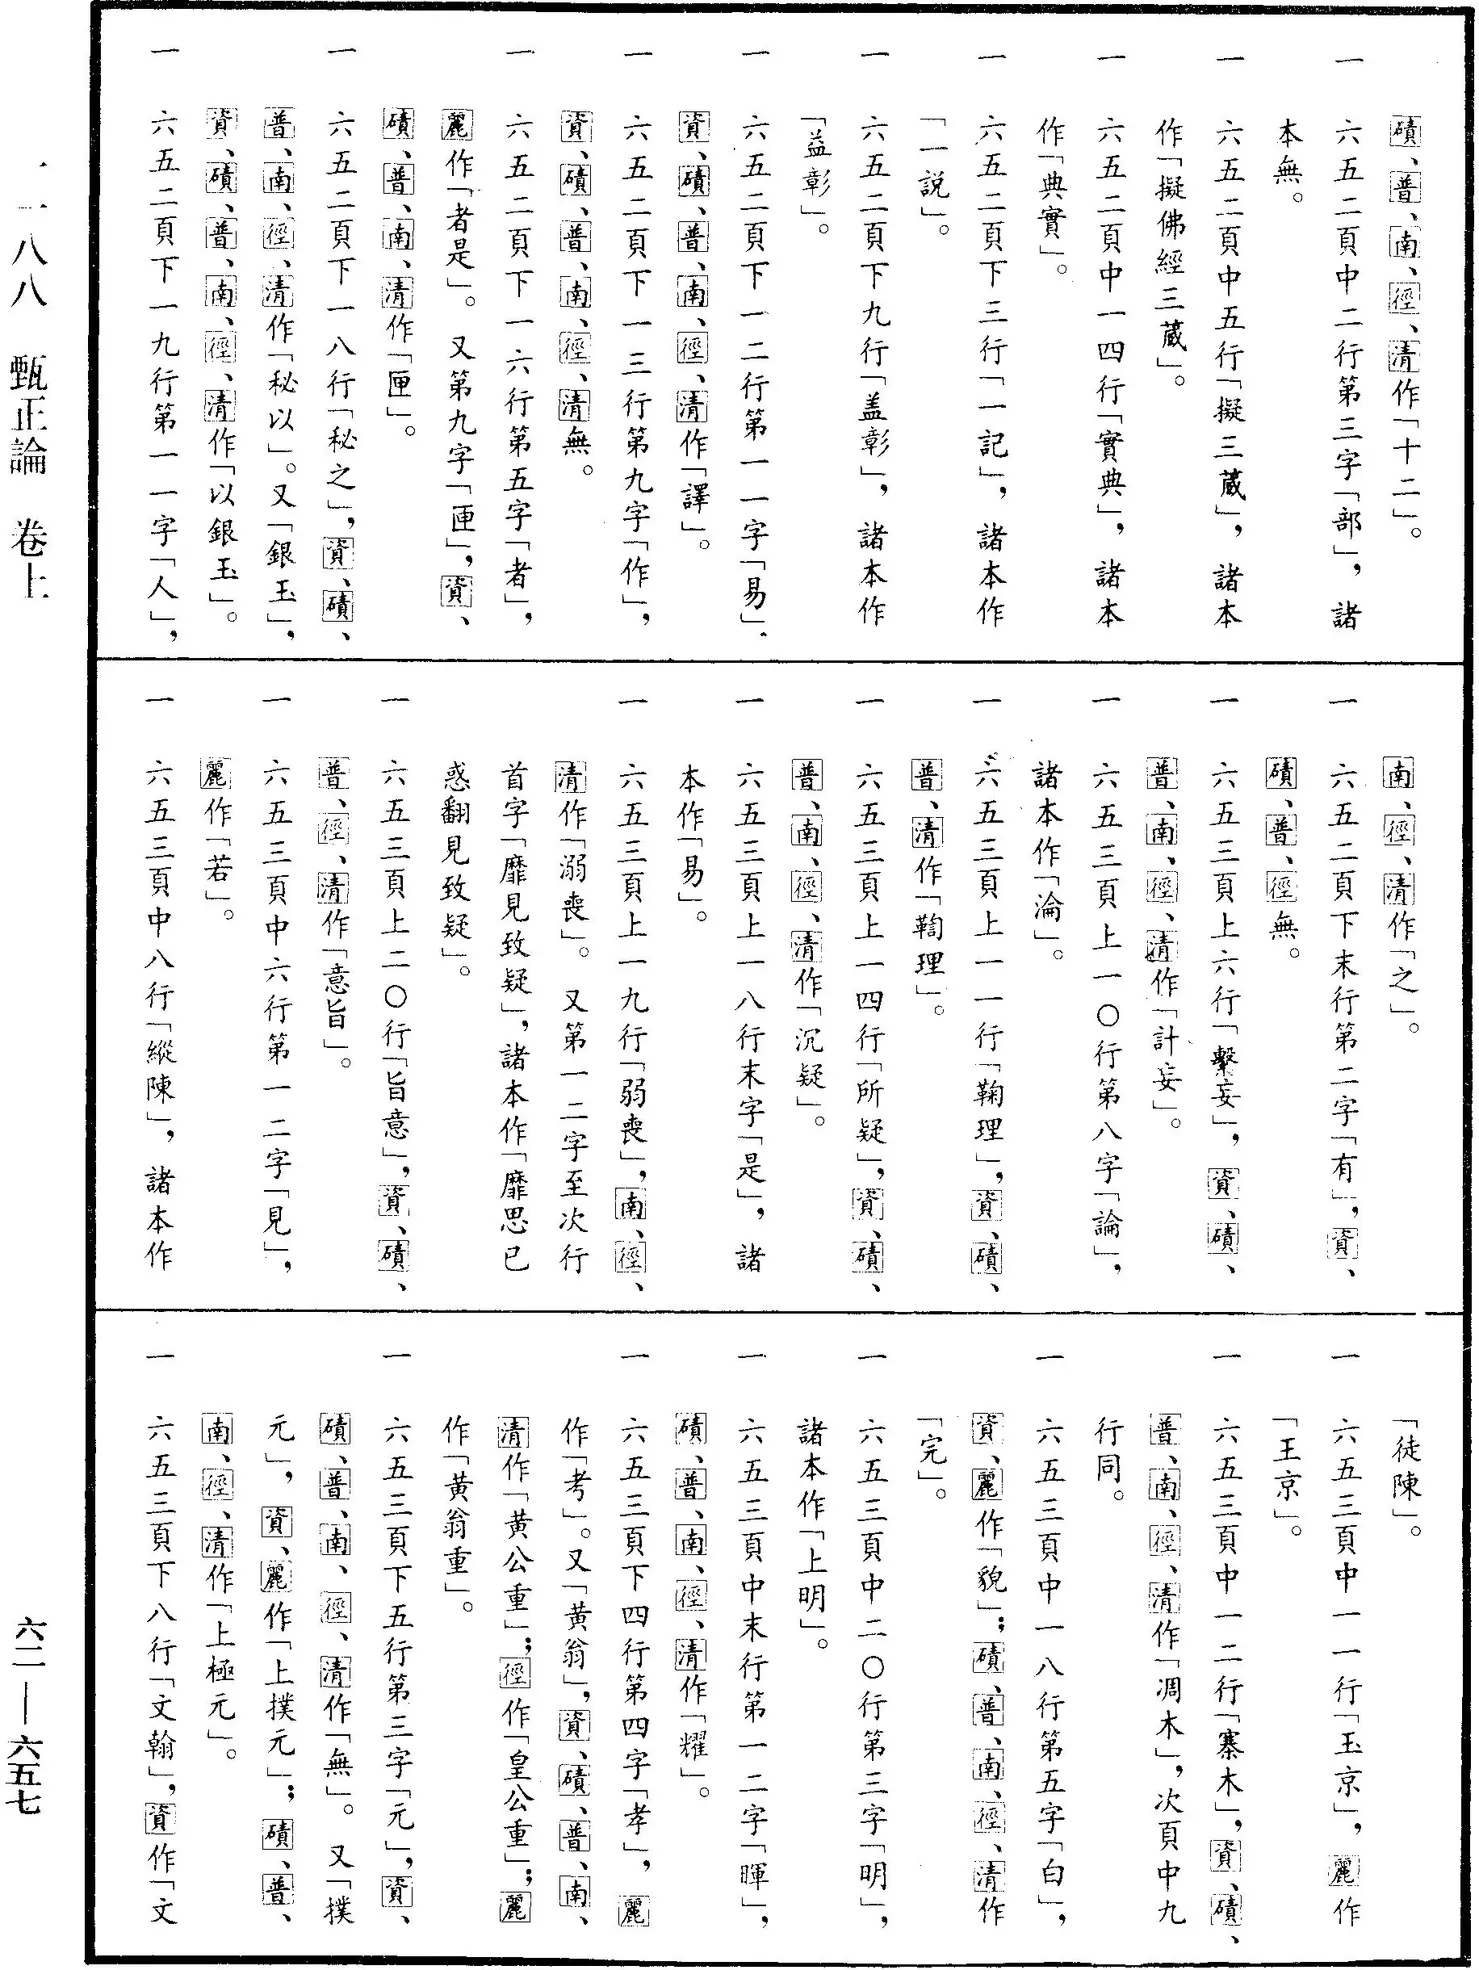 磧、普、南、徑、清作「十二」。
一　六五二頁中二行第三字「部」，諸
本無。
一　六五二頁中五行「擬三藏」，諸本
作「擬佛經三藏」。
一　六五二頁中一四行「實典」，諸本
作「典實」。
一　六五二頁下三行「一記」，諸本作
「一說」。
一　六五二頁下九行「盖彰」，諸本作
「益彰」。
一　六五二頁下一二行第一一字「易」、
資、磧、普、南、徑、清作「譯」。
一　六五二頁下一三行第九字「作」，
資、磧、普、南、徑、清無。
一　六五二頁下一六行第五字「者」，
麗作「者是」。又第九字「匣」，資、
磧、普、南、清作「匣」。
一　六五二頁下一八行「秘之」，資、磧、
普、南、徑、清作「秘以」。又「銀玉」，
資、磧、普、南、徑、清作「以銀玉」。
一　六五二頁下一九行第一一字「人」，
南、徑、清作「之」。
一　六五二頁下末行第二字「有」，資、
磧、普、徑無。
一　六五三頁上六行「繫妄」，資、磧、
普、南、徑、清作「計妄」。
一　六五三頁上一〇行第八字「論」，
諸本作「淪」。
一　六五三頁上一一行「鞠理」，資、磧、
普、清作「鞫理」。
一　六五三頁上一四行「所疑」，資、磧、
普、南、徑、清作「沉疑」。
一　六五三頁上一八行末字「是」，諸
本作「易」。
一　六五三頁上一九行「弱喪」，南、徑、
清作「溺喪」。又第一二字至次行
首字「靡見致疑」，諸本作「靡思已
惑翻見致疑」。
一　六五三頁上二〇行「旨意」，資、磧、
普、徑、清作「意旨」。
一　六五三頁中六行第一二字「見」，
麗作「若」。
一　六五三頁中八行「縱陳」，諸本作
「徒陳」。
一　六五三頁中一一行「玉京」，麗作
「王京」。
一　六五三頁中一二行「寨木」，資、磧、
普、南、徑、清作「凋木」，次頁中九
行同。
一　六五三頁中一八行第五字「白」，
資、麗作「貌」；磧、普、南、徑、清作
「完」。
一　六五三頁中二〇行第三字「明」，
諸本作「上明」。
一　六五三頁中末行第一二字「暉」，
磧、普、南、徑、清作「耀」。
一　六五三頁下四行第四字「孝」，麗
作「考」。又「黄翁」，資、磧、普、南、
清作「黄公重」；徑作「皇公重」；麗
作「黄翁重」。
一　六五三頁下五行第三字「元」，資、
磧、普、南、徑、清作「無」。又「撲
元」，資、麗作「上撲元」；磧、普、
南、徑、清作「上極元」。
一　六五三頁下八行「文翰」，資作「文
一一八八　甄正論　卷上
六二—六五七